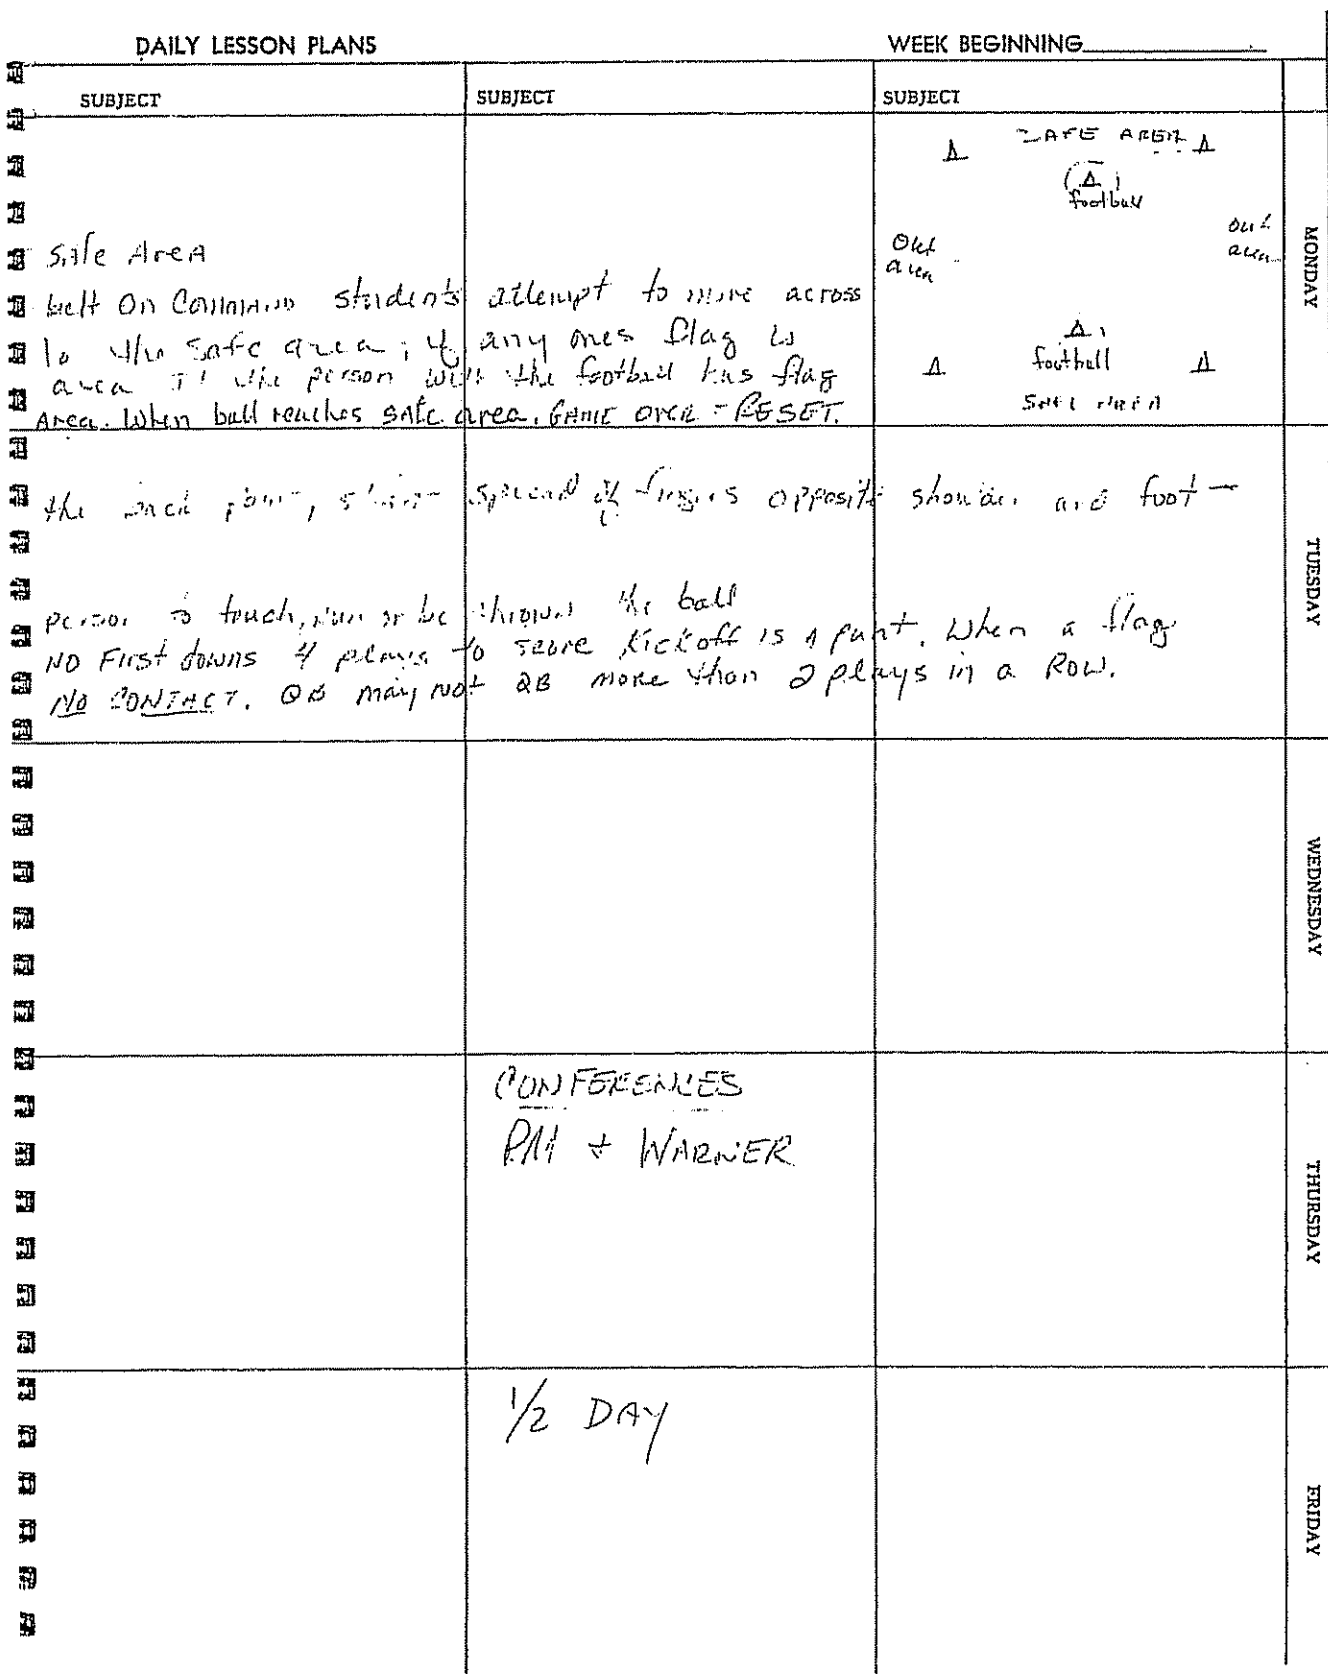 DAILY LESSON PLANS WEEK BEGINNING
SUBJECT SUBJECT SUBJECT
SAFE AREA
football
out area
out area
football
SAFE AREA
MONDAY
Safe Area
belt On Command students attempt to move across
to the safe area; if any ones flag is
area If the person with the football has flag
Area. When ball reaches safe area. GAME OVER - RESET.
the, spread of fingers opposite shoulder and foot -
person to touch, run or be thrown the ball
NO First downs 4 plays to score Kickoff is a punt. When a flag
NO CONTACT. QB may not QB more than 2 plays in a Row.
TUESDAY
WEDNESDAY
CONFERENCES
PM + WARNER
THURSDAY
1/2 DAY
FRIDAY